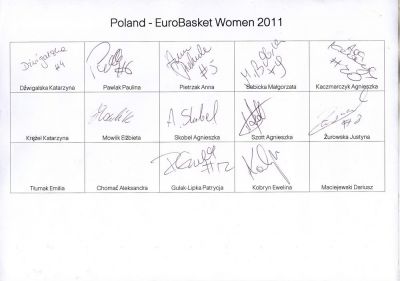 Poland - EuroBasket Women 2011
Dźwigalska #4
#16
#5
M. Babicka #9
Dźwigalska Katarzyna
Pawlak Paulina
Pietrzak Anna
Babicka Małgorzata
Kaczmarczyk Agnieszka
A. Skobel
Krężel Katarzyna
Mowlik Elżbieta
Skobel Agnieszka
Szott Agnieszka
Żurowska Justyna
#12
Tłumak Emilia
Chomać Aleksandra
Gulak-Lipka Patrycja
Kobryn Ewelina
Maciejewski Dariusz